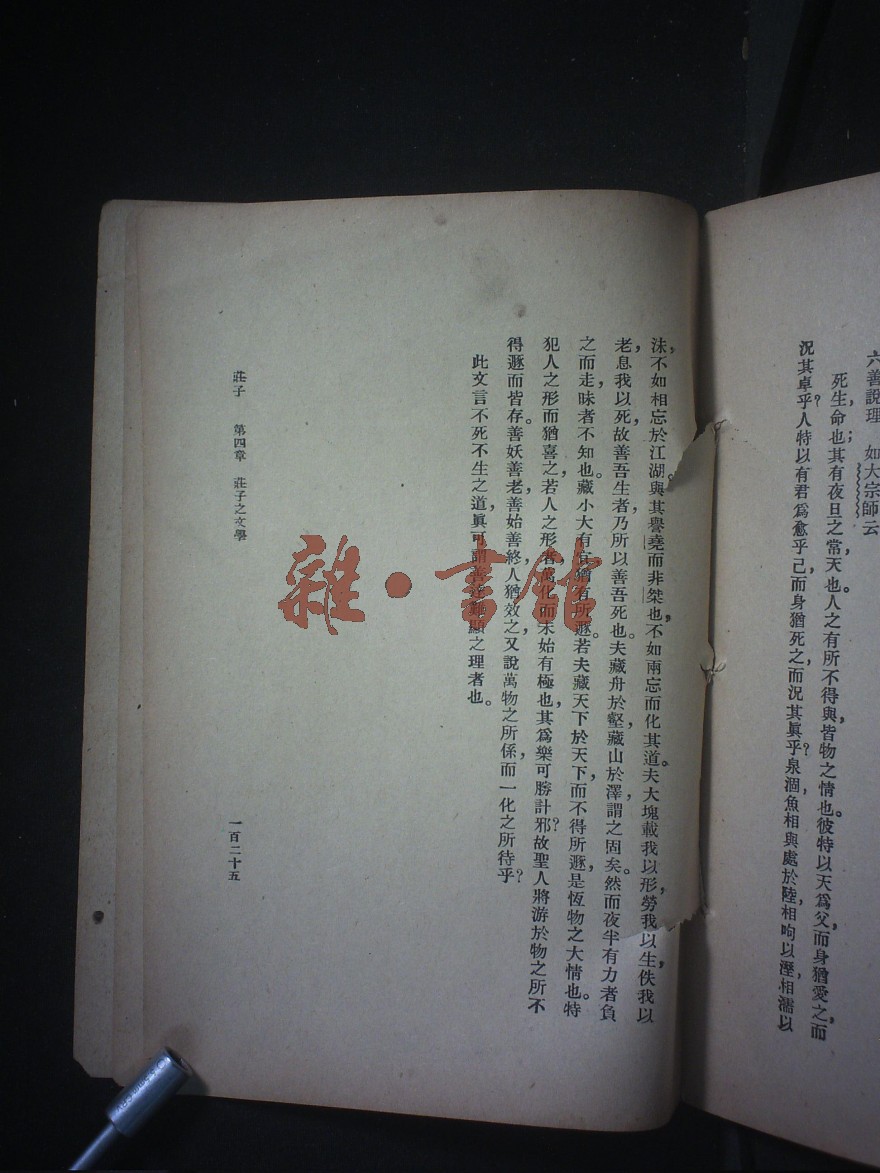 六善說理 如大宗師云
死,生命也;其有夜旦之常,天也。人之有所不得與,皆物之情也。彼特以天爲父,而身猶愛之,而
況其卓乎?人特以有君爲愈乎己,而身猶死之,而況其眞乎?泉涸,魚相與處於陸,相呴以溼,相濡以
沫,不如相忘於江湖。與其譽堯而非桀也,不如兩忘而化其道。夫大塊載我以形,勞我以生,佚我以
老,息我以死,故善吾生者,乃所以善吾死也。夫藏舟於壑,藏山於澤,謂之固矣。然而夜半有力者負
之而走,昧者不知也。藏小大有宜,猶有所遯。若夫藏天下於天下,而不得所遯,是恆物之大情也。特
犯人之形而猶喜之,若人之形者,萬化而未始有極也,其爲樂可勝計邪?故聖人將游於物之所不
得遯而皆存。善妖善老,善始善終,人猶效之,又說萬物之所係,而一化之所待乎?
此文言不死不生之道,眞可謂善達難顯之理者也。
莊子 第四章 莊子之文學
一百二十五
雜·書館